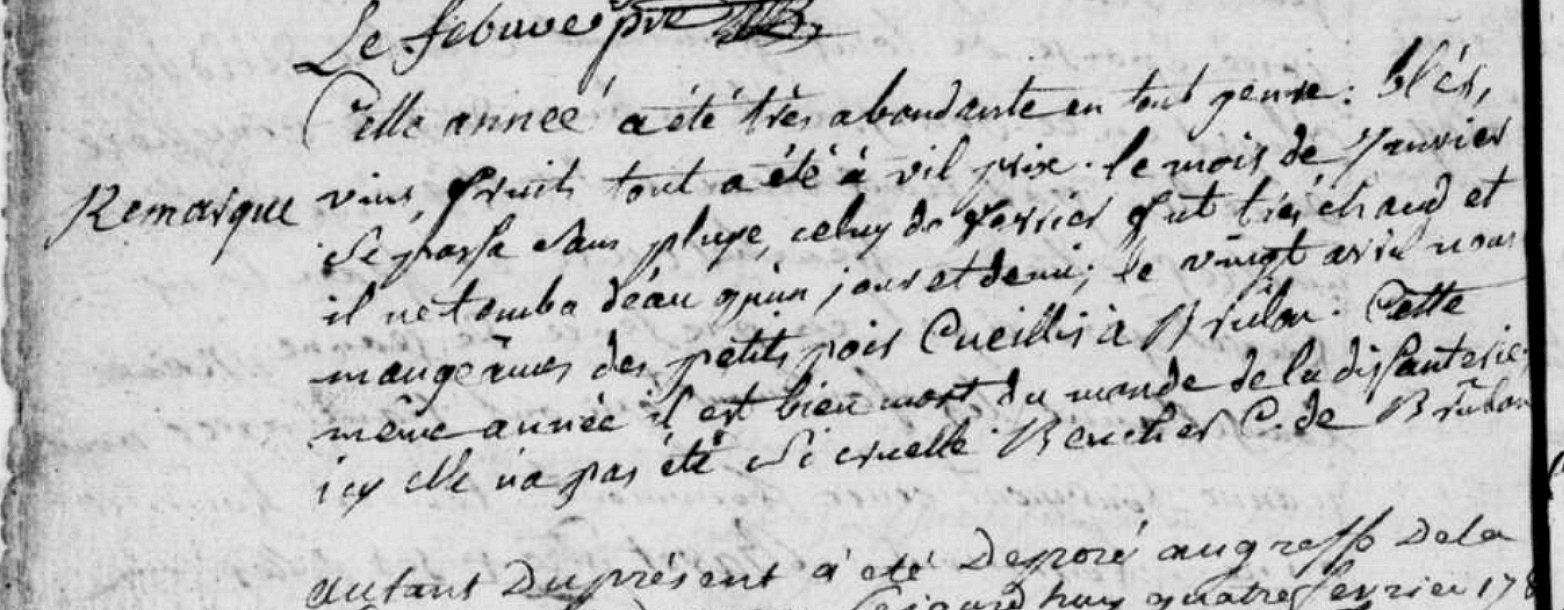 Le febuve pre
Cette année a été très abondante en tout genre : bléds,
Remarque
vins, fruits tout a été à vil prix. le mois de Janvier
se passa sans pluye, celuy de fevrier fut très chaud et
il ne tomba d'éau qu'un jour et demi; le vingt avril nous
mangeâmes des petits pois Cueillis à Brûlon. Cette
même année il est bien mort du monde de la dissenterie;
icy elle n'a pas été si cruelle. Beucher C. de Brûlon
autant Du présent a été Déposé au greffe De la
quatre fevrier 178